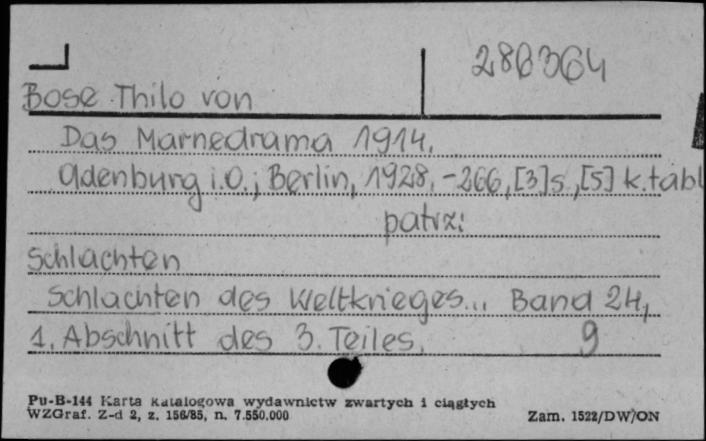 286364
Bose Thilo von
Das Marnedrama 1914.
Oldenburg i.O.; Berlin, 1928. - 266, [3] s., [5] k. tabl
patrz:
Schlachten
Schlachten des Weltkrieges... Band 24,
1. Abschnitt des 3. Teiles. 9
Pu-B-144 Karta katalogowa wydawnictw zwartych i ciągłych
WZGraf. Z-d 2, z. 156/85, n. 7.550.000 Zam. 1522/DW/ON